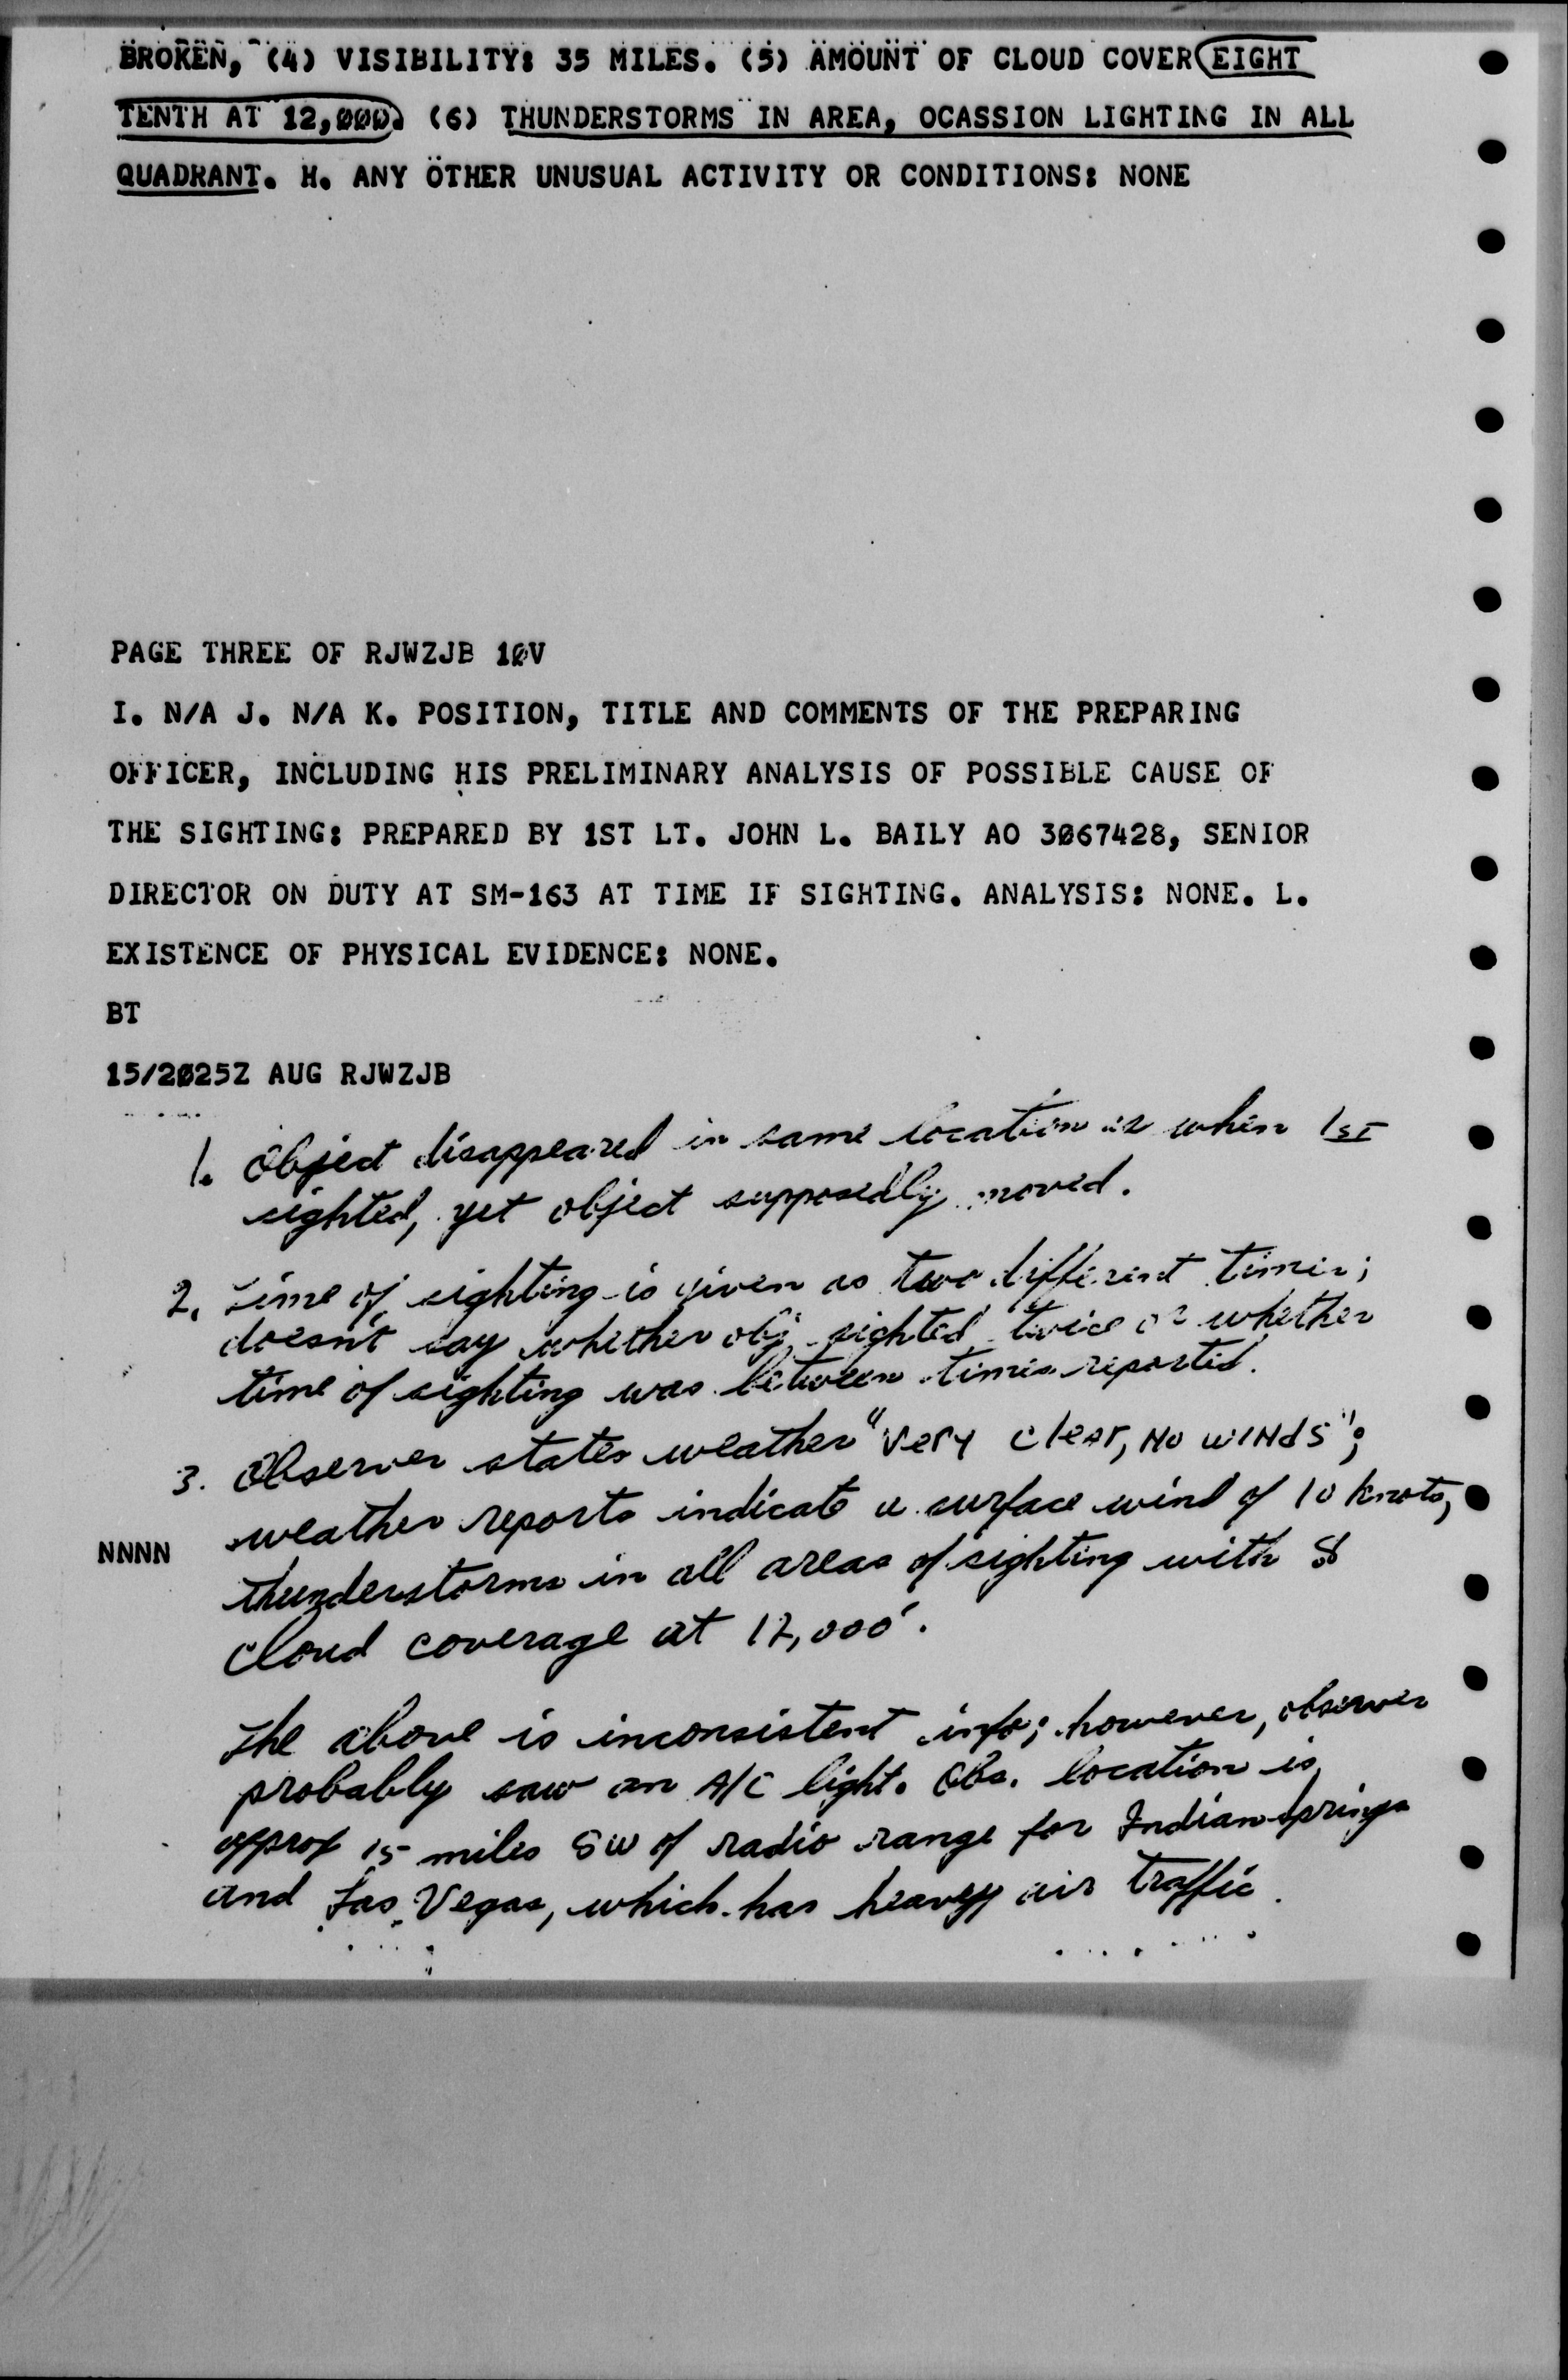 BROKEN, (4) VISIBILITY: 35 MILES. (5) AMOUNT OF CLOUD COVER EIGHT
TENTH AT 12,000. (6) THUNDERSTORMS IN AREA, OCASSION LIGHTING IN ALL
QUADRANT. H. ANY OTHER UNUSUAL ACTIVITY OR CONDITIONS: NONE
PAGE THREE OF RJWZJB 10V
I. N/A J. N/A K. POSITION, TITLE AND COMMENTS OF THE PREPARING
OFFICER, INCLUDING HIS PRELIMINARY ANALYSIS OF POSSIBLE CAUSE OF
THE SIGHTING: PREPARED BY 1ST LT. JOHN L. BAILY AO 3067428, SENIOR
DIRECTOR ON DUTY AT SM-163 AT TIME IF SIGHTING. ANALYSIS: NONE. L.
EXISTENCE OF PHYSICAL EVIDENCE: NONE.
BT
15/2025Z AUG RJWZJB
1. Object disappeared in same location as when 1st
sighted, yet object supposedly moved.
2. Time of sighting is given as two different times;
doesn't say whether obj. sighted twice or whether
time of sighting was between times reported.
3. Observer states weather "very clear, no winds";
weather reports indicate a surface wind of 10 knots,
NNNN
thunderstorms in all areas of sighting with 8
cloud coverage at 12,000'.
The above is inconsistent info; however, observer
probably saw an A/C light. Obs. location is
approx 15 miles SW of radio range for Indian Springs
and Las Vegas, which has heavy air traffic.